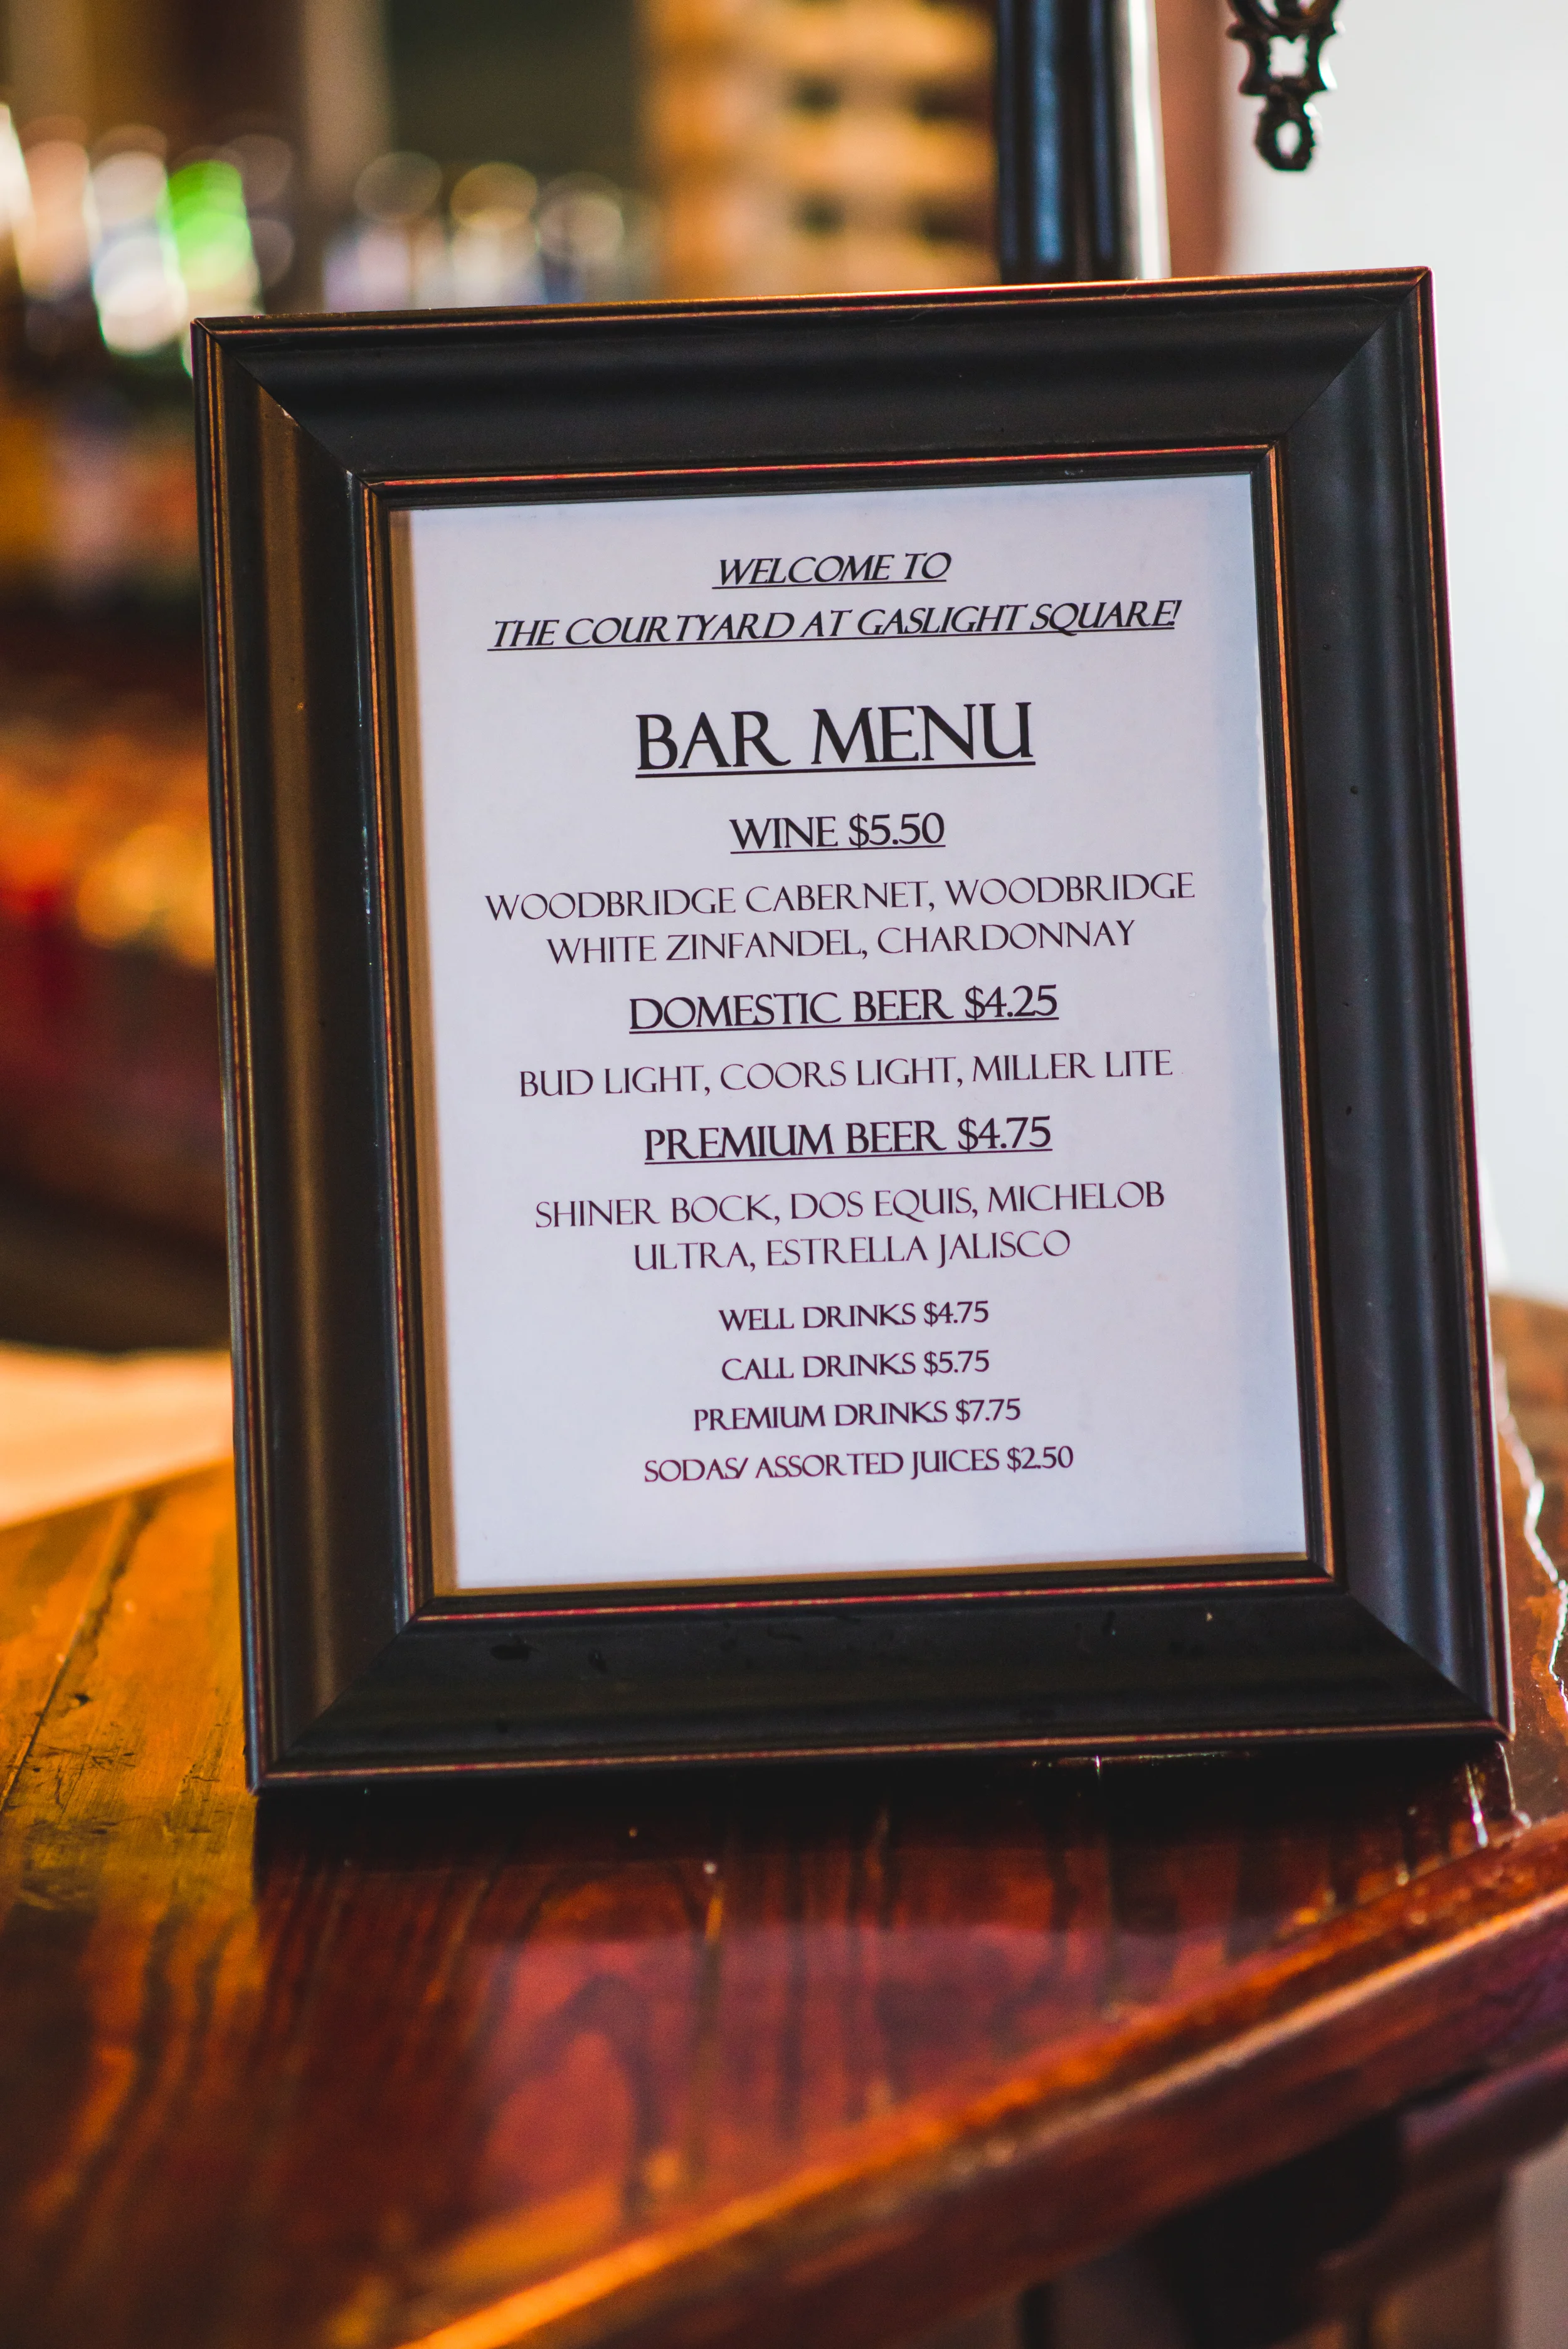 WELCOME TO
THE COURTYARD AT GASLIGHT SQUARE!
BAR MENU
WINE $5.50
WOODBRIDGE CABERNET, WOODBRIDGE
WHITE ZINFANDEL, CHARDONNAY
DOMESTIC BEER $4.25
BUD LIGHT, COORS LIGHT, MILLER LITE
PREMIUM BEER $4.75
SHINER BOCK, DOS EQUIS, MICHELOB
ULTRA, ESTRELLA JALISCO
WELL DRINKS $4.75
CALL DRINKS $5.75
PREMIUM DRINKS $7.75
SODAS/ ASSORTED JUICES $2.50